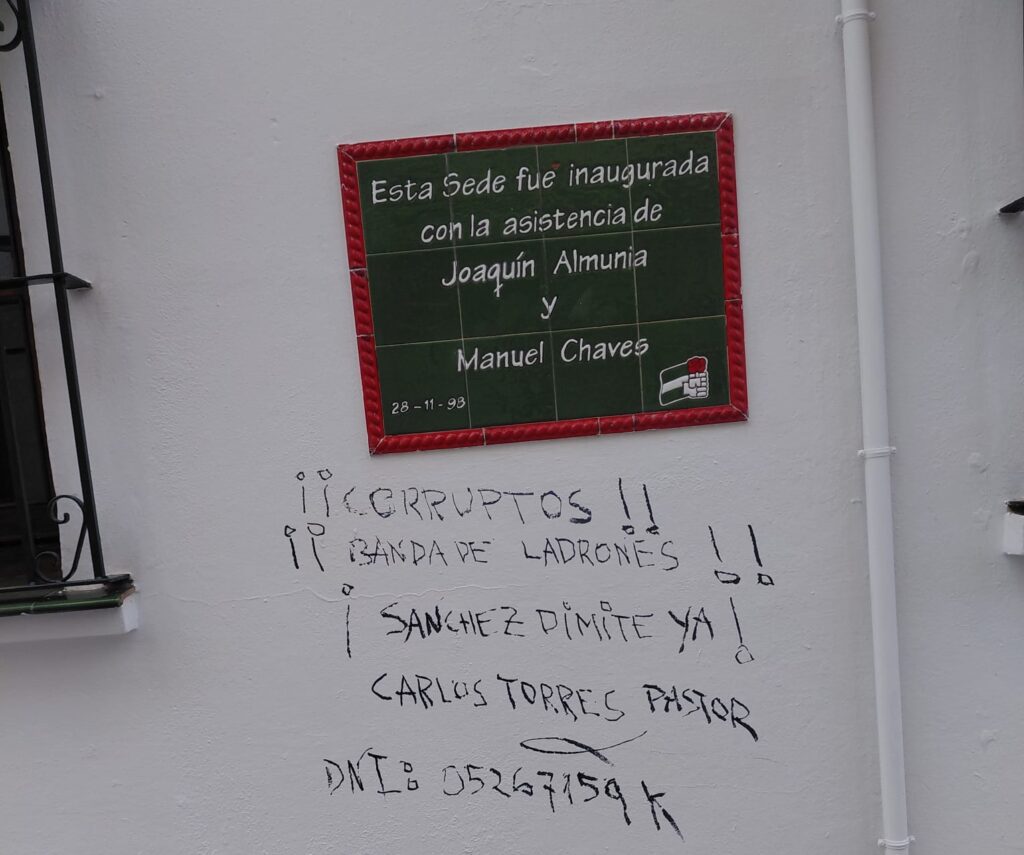 Esta Sede fué inaugurada
con la asistencia de
Joaquín Almunia
y
Manuel Chaves
28-11-98
¡¡CORRUPTOS!!
¡¡BANDA DE LADRONES!!
¡SANCHEZ DIMITE YA!
CARLOS TORRES PASTOR
DNI: 05267159K